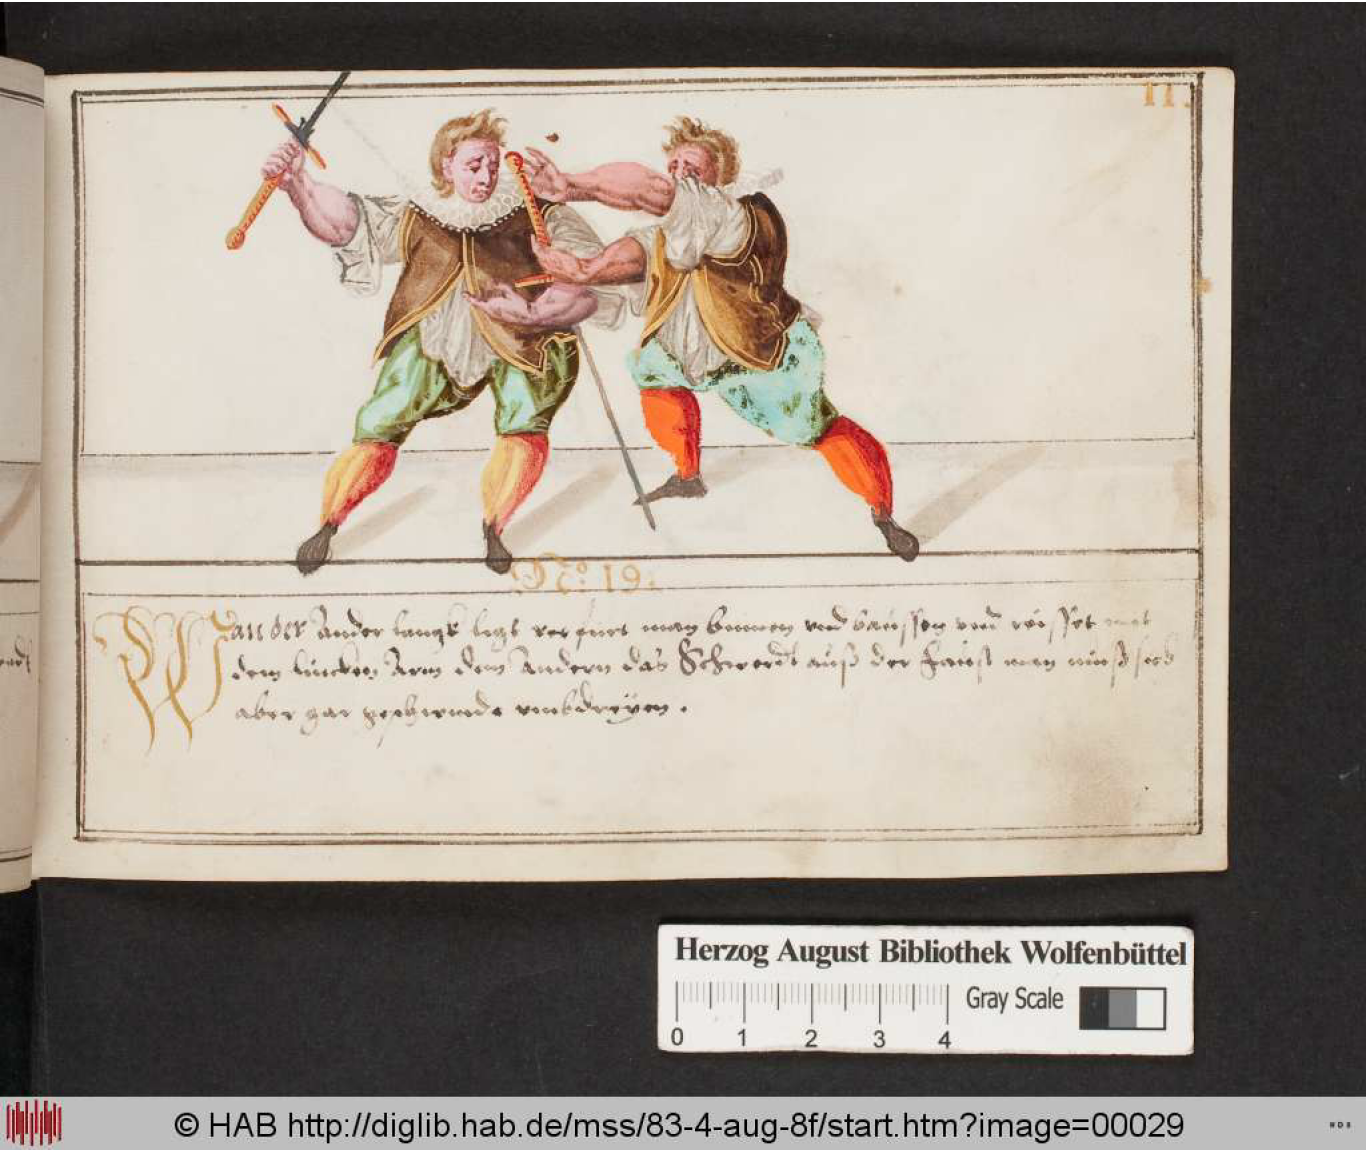 11.
C. 3: 19.
Wan der Ander langk ligt verfürt man binnen vnd baussen vnd reisset mit
dem lincken Arm dem Andern das Schwerdt auß der Faust man muß sich
aber gar geschwinde vmbdreyen.
Herzog August Bibliothek Wolfenbüttel
Gray Scale
0 1 2 3 4
© HAB http://diglib.hab.de/mss/83-4-aug-8f/start.htm?image=00029